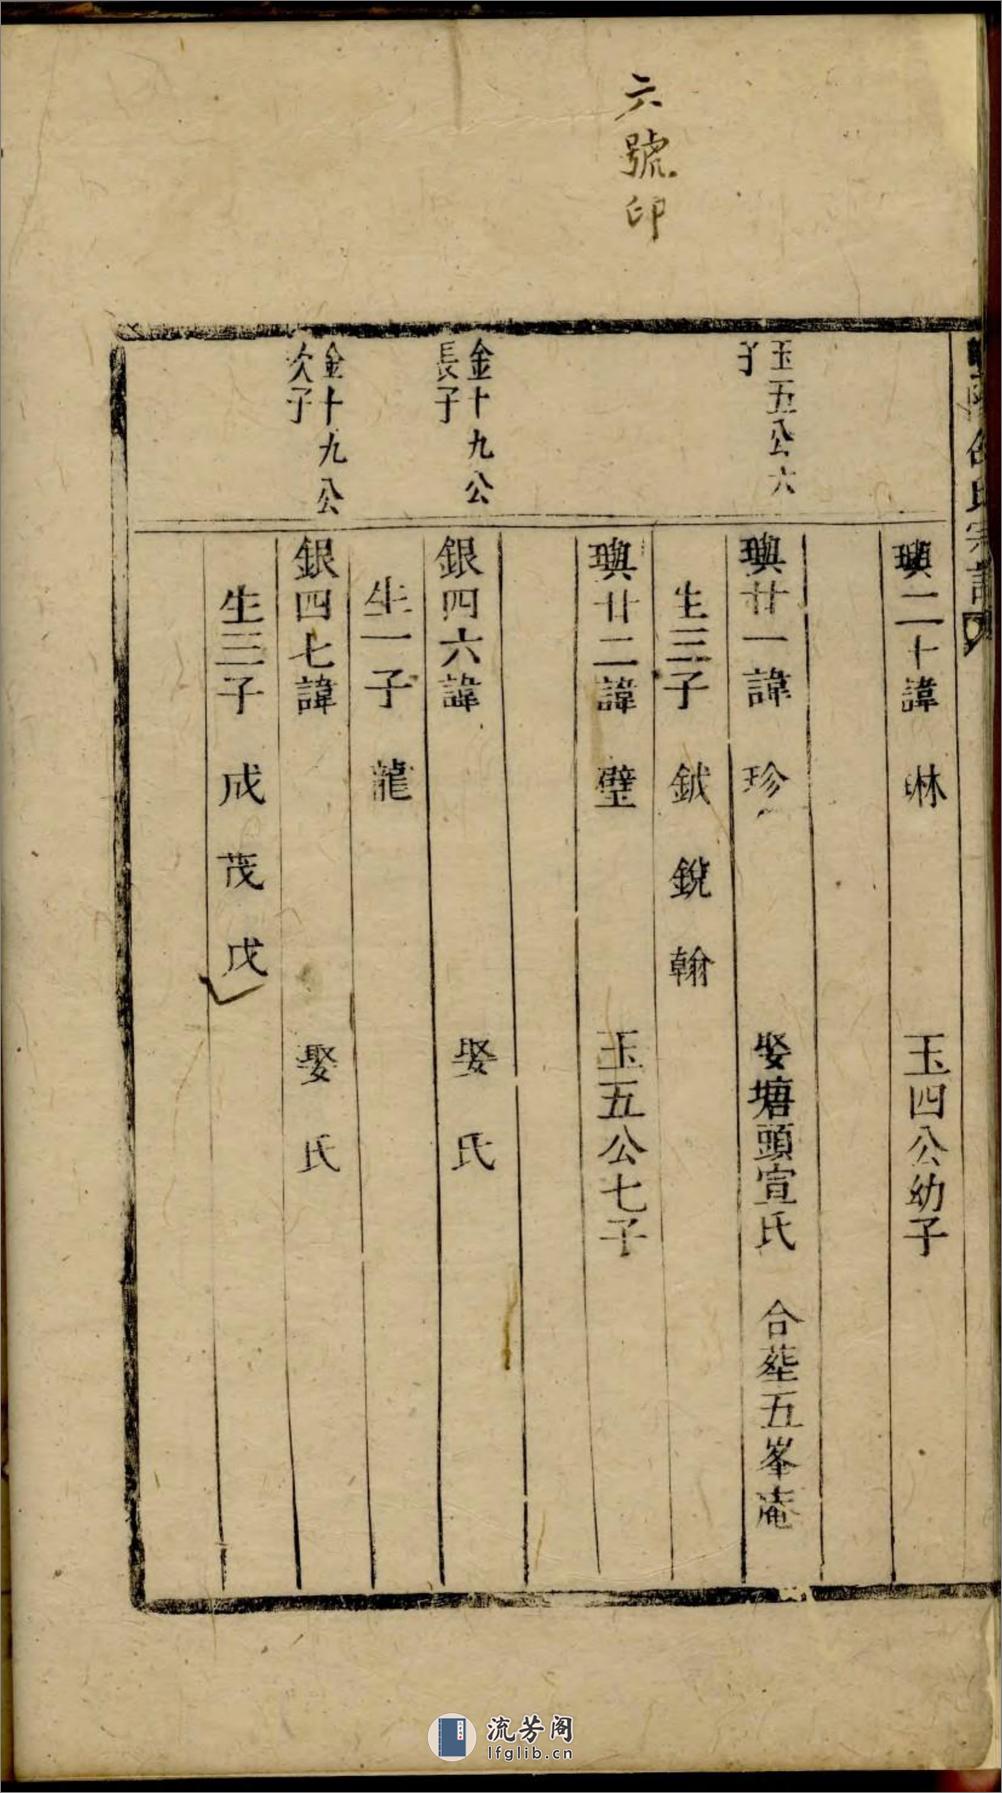 六號印
氏宗譜
璵二十諱 琳 玉四公幼子
玉五公六
子
璵廿一諱 珍 娶塘頭宣氏 合塟五峯庵
生三子 鉞 銳 翰
璵廿二諱 璧 玉五公七子
金十九公
長子
銀四六諱 娶 氏
生一子 龍
金十九公
次子
銀四七諱 娶 氏
生三子 成 茂 戊
流芳阁
lfglib.cn